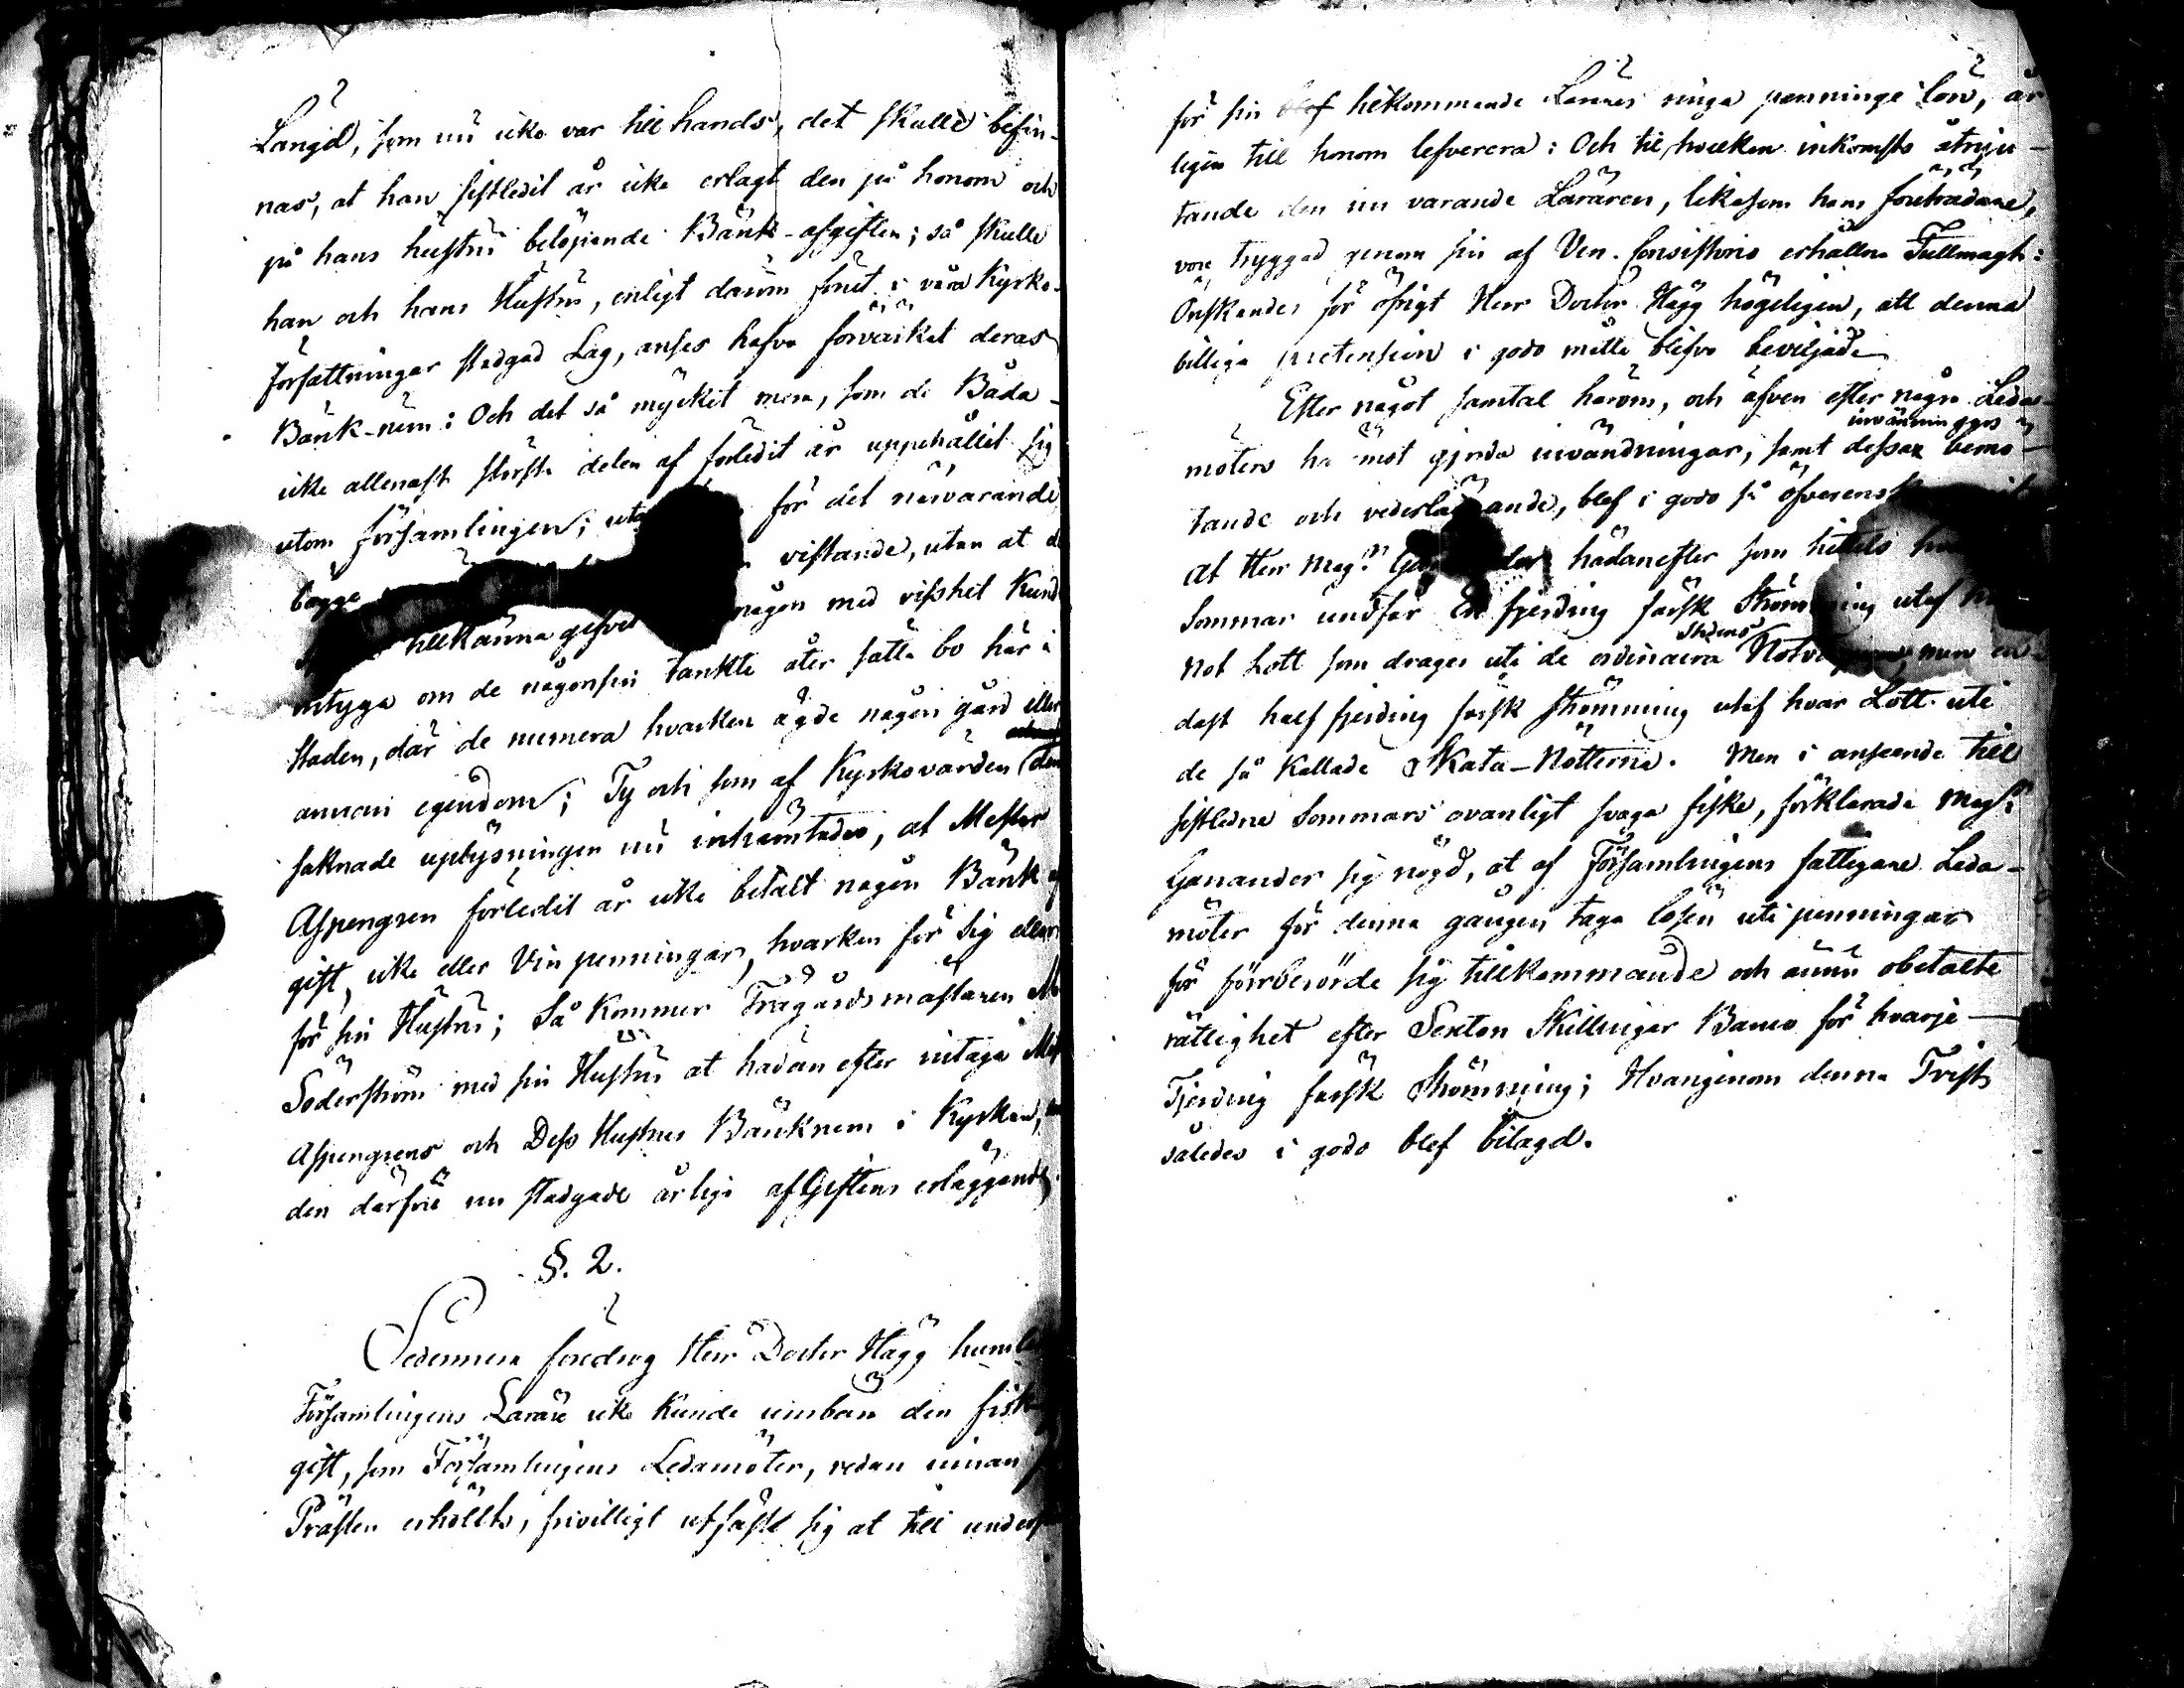 Längd, som nu icke var till hands, det skulle befin-
nas, at han sistledit år icke erlagt den på honom och
på hans hustru belöpande Bänk-afgiften; så skulle
han och hans Hustru, enligt därom förut i våra Kyrko-
författningar stadgad Lag, anses hafva förvärkat deras
Bänk-rum: Och det så mycket mera, som de Båda
icke allenast största delen af förledit år uppehållit sig
utom församlingen; för det närvarande
bägge vistande, utan at
tillkänna gifvet någon med visshet Kund
intyga om de någonsin tänkte åter sätta bo här i
Staden, där de numera hvarken ägde någon gård eller
annan egendom; Ty och som af Kyrkovärden den
saknade uplysningen nu inhämtades, at Mester
Aspengren förledit år icke betalt någon Bänk
gift, icke eller Vin penningar, hvarken för sig eller
för sin Hustru; Så kommer Trägårdsmästaren
Söderström med sin Hustru at hädan efter intaga
Aspengrens och Dess Hustrus Bänkrum i Kyrkan,
den därföre nu stadgade årliga afGiftens erläggande.
§. 2.
Sedermera föredrog Herr Doctor Hägg
Församlingens Lärare icke kunde umbära den fisk
gift, som Församlingens Ledamöter, redan innan
Prästen erhållts, frivilligt utfäst sig at till
för sin blef tilkommande Lärares ringa penninge lön, år
ligen till honom lefverera: Och til hvilken inkomsts åtnju-
tande den nu varande Läraren, likasom hans företrädare,
vore tryggad genom sin af Ven. Consistorio erhållna Fullmagt:
Önskandes för öfrigt Herr Doctor Hägg högeligen, att denna
billiga pretension i godo måtte blifva beviljade
Efter något samtal härom, och äfven efter några Leda-
inväninggars
möters här emot gjorda invändningar, samt dessas bemö-
tande och vederläggande, blef i godo så öfverens
at Herr Mag:r Ganander hädanefter som hittils
Sommar undfår En fjerding färsk Strömming utaf
Ströms
Not Lott som drages uti de ordinaira men en
dast half fjerding färsk strömming utaf hvar Lott uti
de så kallade Skata-Notterna. Men i anseende till
sistledne Sommars ovanligt svaga fiske, förklarade Mag:r
Ganander sig nögd, at af Församlingens fattigare Leda-
möter för denna gången taga lösen uti penningar
för förberörde sig tillkommande och ännu obetalte
rättighet efter Sexton Skillingar Banco för hvarje
Fjerding färsk Strömming; Hvarigenom denna Tvist
således i godo blef bilagd.